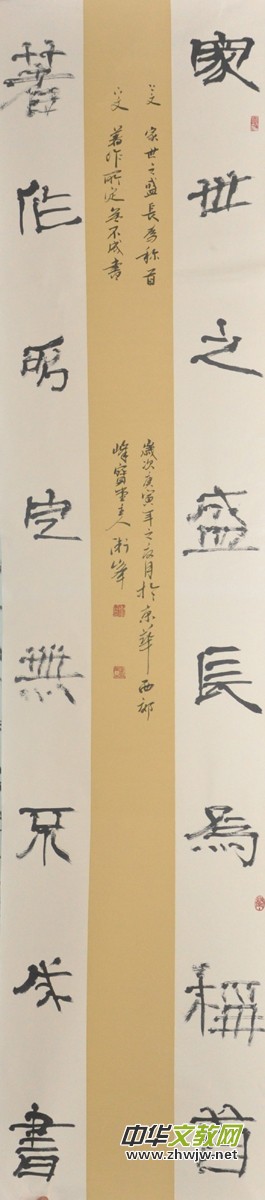 家世之盛長為称首
著作所定無不成書
上文 家世之盛長為称首
下文 著作所定無不成書
歲次庚寅年之於京華西郊
峰寶堂主人
中华文教网
www.zhwjw.net